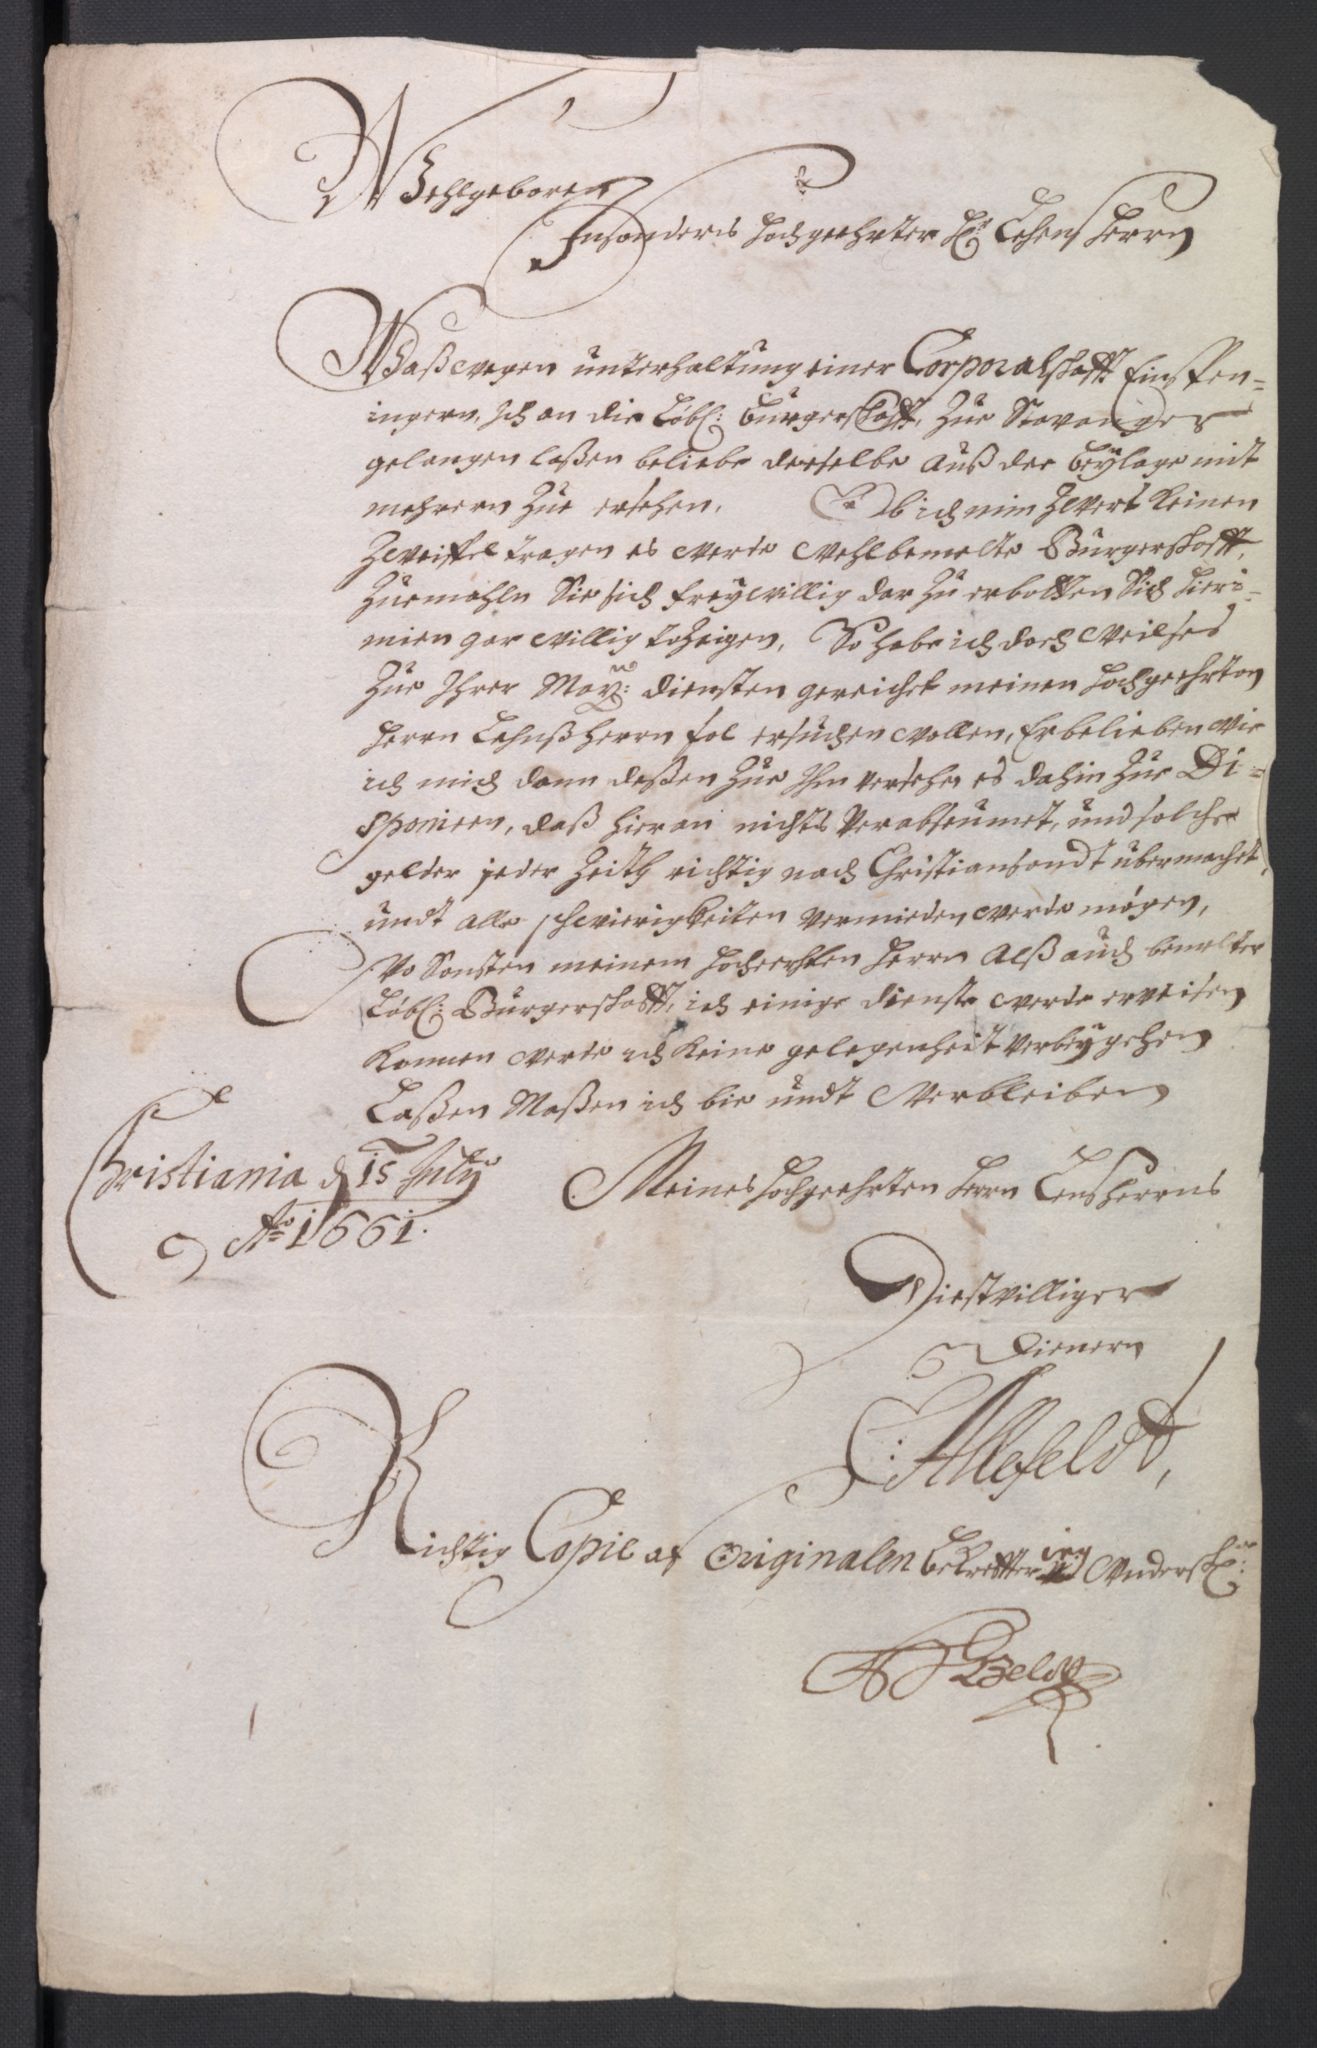 Wohlgeboren
Insonders hochgeehrter H: Lehens Herrn
Waß wegen unterhaltung einer Corporalschafft Einspen=
ingern, Ich an die Löbl: Bürgerschafft, Zue Stavanger
gelangen laßen beliebe derselbe Auß der beylage mit
mehrern Zue ersehen. Ob ich nun Zwert keinen
Zweiffel tragen es werde Wohlbemelte Bürgerschafft,
Zuemahln Sie sich freywillig dar Zu erbotten Sich hier=
gar willig Zeigen, So habe ich doch weil es
Zue Ihrer May: diensten gereichet meinen hochgeehrten
Herrn Lehnßherrn ersuchen wollen, Er belieben wie
ich mich dann deßen Zue Ihm versehe es dahin Zur Di=
sponieren, daß hieran nichts Verabseumet, und solche
gelder jeder Zeith richtig nach Christiansandt übermachet,
undt alle schwierigkeiten vermieden werde mögen,
Wo Sonsten meinem hochgeehrten Herrn Alß auch bemelter
Löbl: Bürgerschafft, ich einige dienste werde erweisen
konnen werde ich keine gelegenheit verbeygehen
Laßen Maßen ich bin undt Verbleiben
Christiania d 15 July
Ao 1661.
Meines hochgeehrten Herrn Lensherrns
Dienstwilliger
Dienern
C: Allefeldt,
Richtig Copie af Originalen bekreffter ieg Underskr: